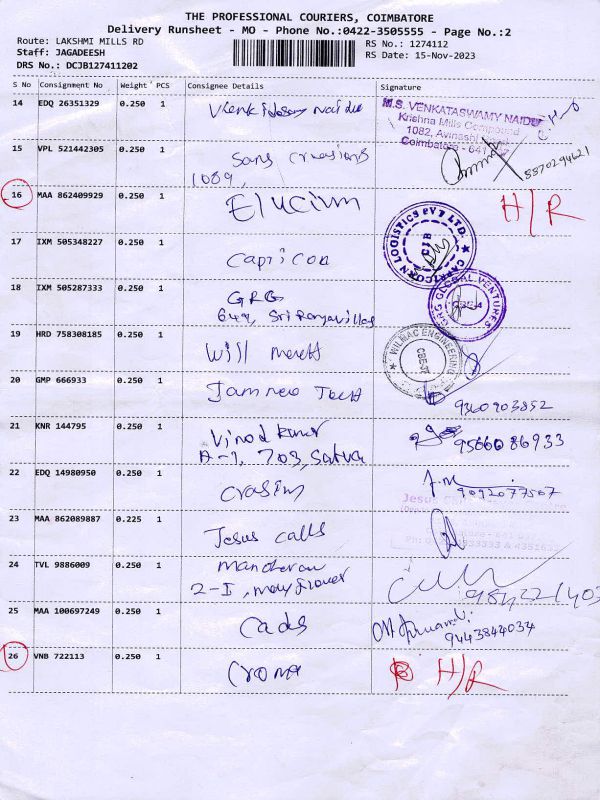 THE PROFESSIONAL COURIERS, COIMBATORE
Delivery Runsheet - MO - Phone No.:0422-3505555 - Page No.:2
Route: LAKSHMI MILLS RD
RS No.: 1274112
Staff: JAGADEESH
RS Date: 15-Nov-2023
DRS No.: DCJB127411202
S No Consignment No Weight PCS Consignee Details Signature
14 EDQ 26351329 0.250 1 Naidu
M.S. VENKATASWAMY NAIDU
Krishna Mills Compound
1082, Avinashi
Coimbatore - 641
15 VPL 521442305 0.250 1 Sans Creations
8870294621
1089,
16 MAA 862409929 0.250 1 Elucium H/R
17 IXM 505348227 0.250 1 Capricon
CAPRICORN LOGISTICS PVT LTD.
CJB
18 IXM 505287333 0.250 1 GRG
649, Sri Ranga Villas
GRG GLOBAL VENTURES
19 HRD 758308185 0.250 1 Will
WILMAC ENGINEERING
20 GMP 666933 0.250 1 Jamneo Tech
9360903852
21 KNR 144795 0.250 1 Vinod Kumar
A-1, 703,
9566086933
22 EDQ 14980950 0.250 1 Crasim
9092077507
23 MAA 862089887 0.225 1 Jesus calls
Jesus
24 TVL 9886009 0.250 1
2-I, Mayflower
25 MAA 100697249 0.250 1 Cads
9443844034
26 VNB 722113 0.250 1 Croma H/R